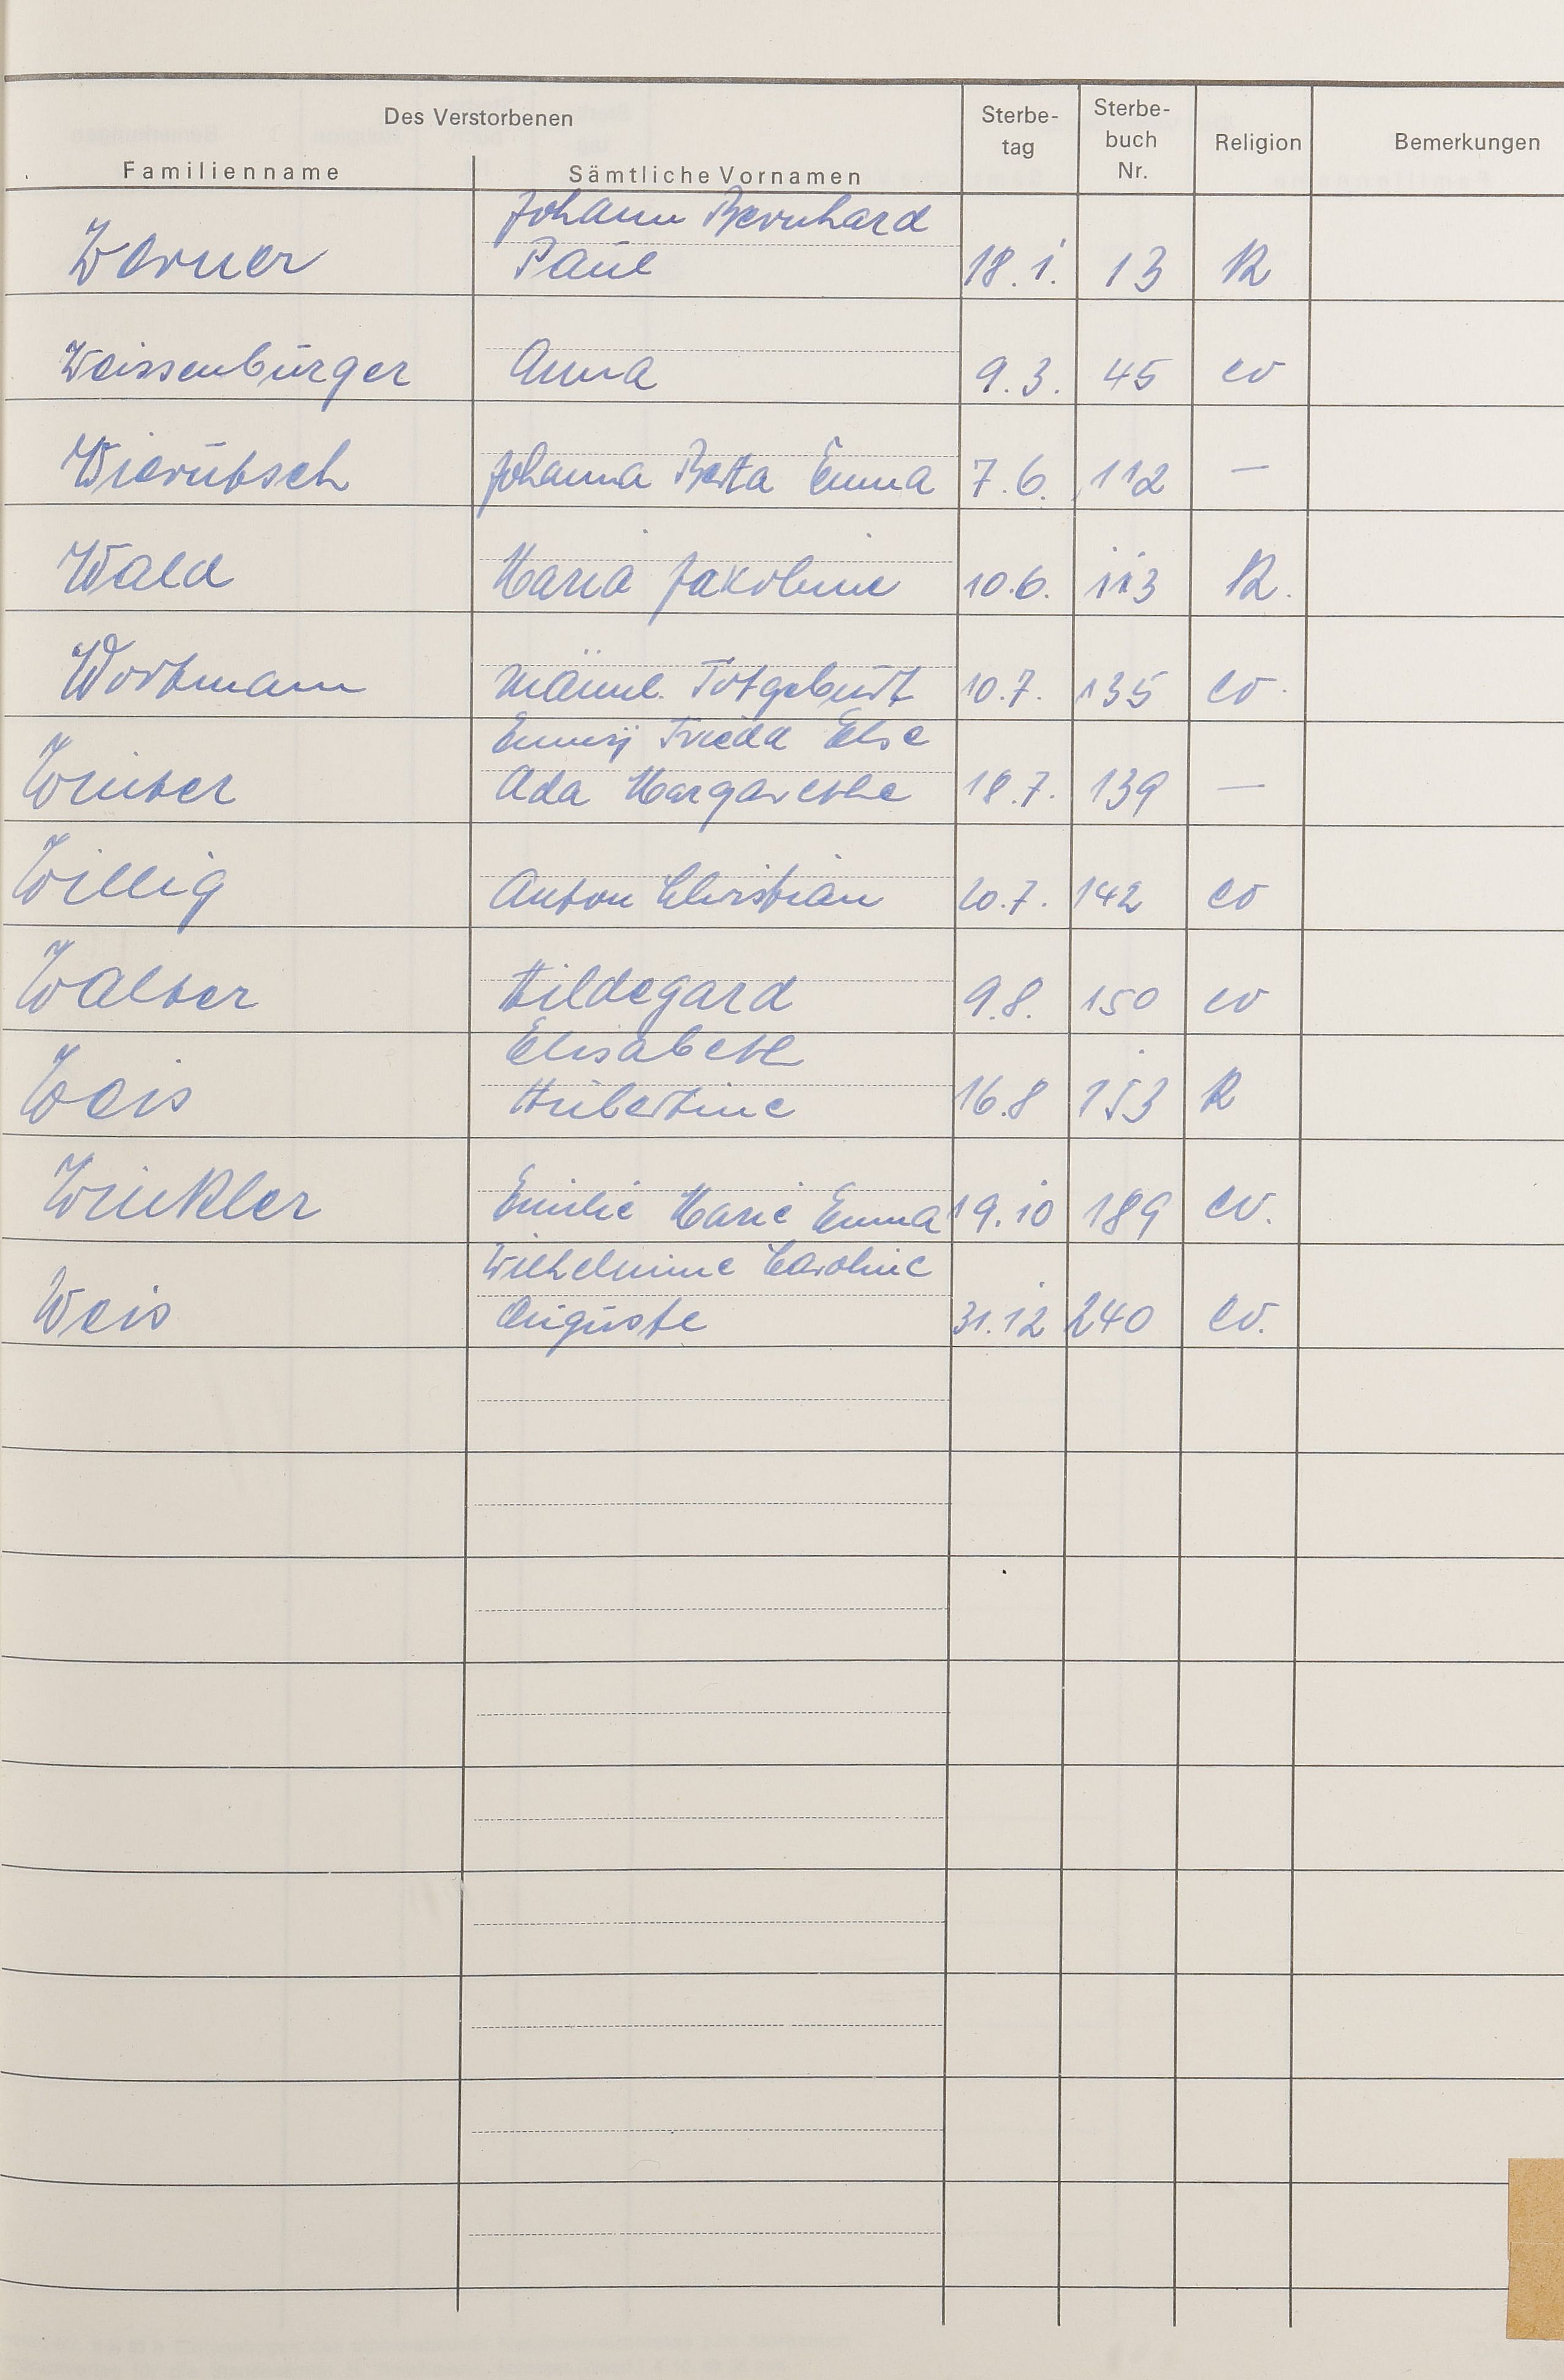 Des Verstorbenen
Familienname Sämtliche Vornamen Sterbe-tag Sterbe-buch Nr. Religion Bemerkungen
Johann Bernhard
Werner Paul 18.1. 13 K
Weissenburger Anna 9.3. 45 ev
Wierutsch Johanna Berta Emma 7.6. 112 —
Wald Maria Jakobine 10.6. 113 K.
Wortmann männl. Totgeburt 10.7. 135 ev.
Emmy Frieda Else
Winter Ada Margarethe 18.7. 139 —
Willig Anton Christian 20.7. 142 ev
Walter Hildegard 9.8. 150 ev
Elisabeth
Weis Hubertine 16.8 153 K
Winkler Emilie Marie Emma 19.10 189 ev.
Wilhelmine Caroline
Weis Auguste 31.12 240 ev.